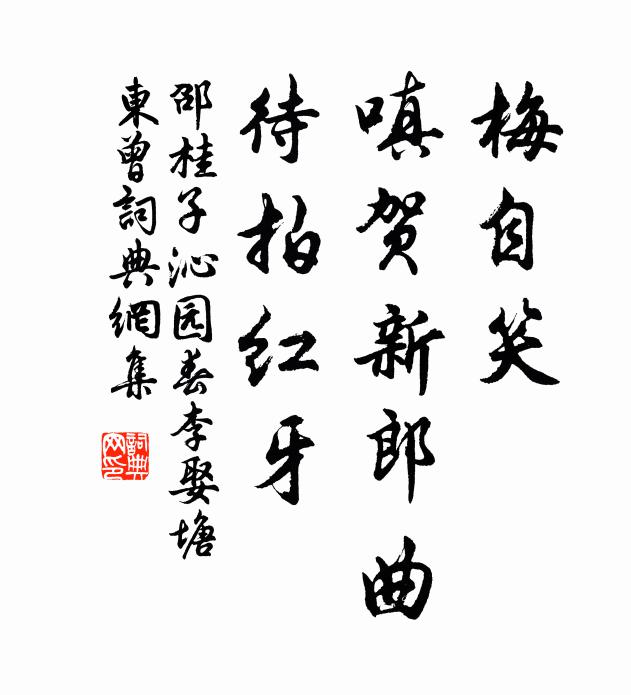 梅自笑
嗔贺新郎曲
待拍红牙
邵桂子沁园春李娶塘
東曾詞典網集
詞典网印